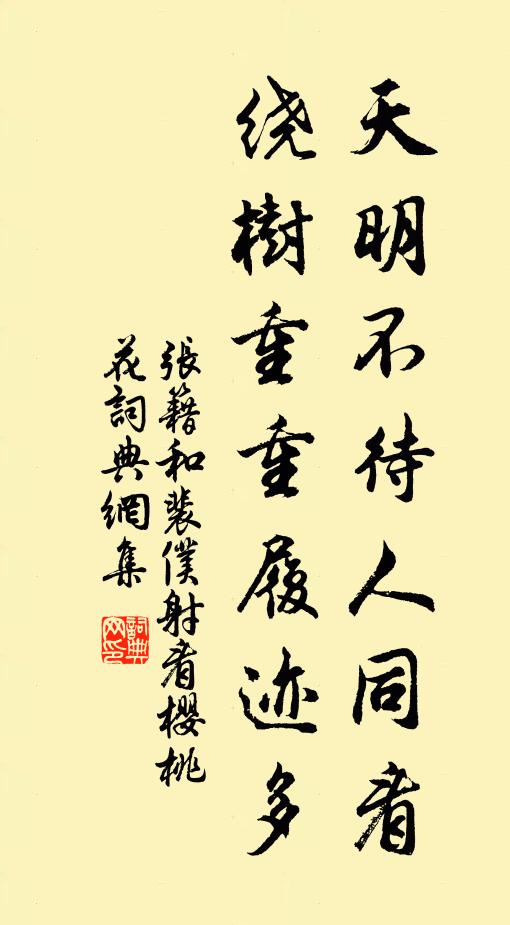 天明不待人同看
绕樹重重履迹多
張籍和裴僕射看櫻桃
花詞典網集
詞典网印